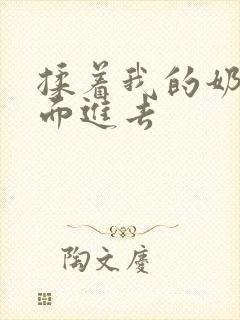 揉着我的奶
而進去
陶文慶